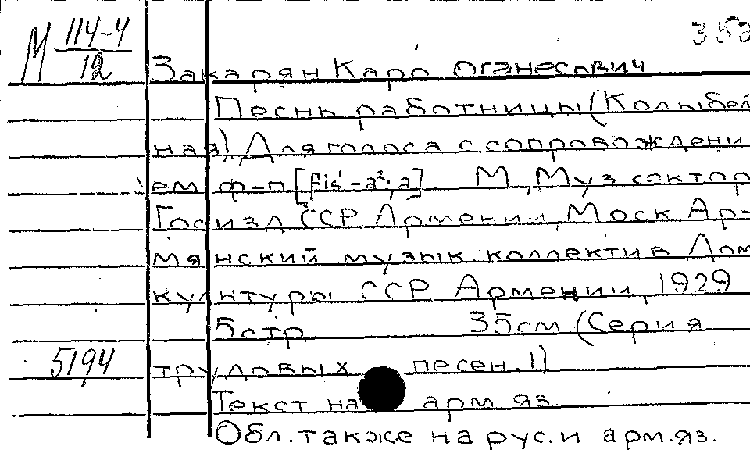 М 114-4/12
353
Закарян Каро Оганесович
Песнь работницы (Колыбель
ная) Для голоса с сопровождени
ем ф-п [fis¹-a²; a] М, Муз сектор
Госизд ССР Армении, Моск Ар-
мянский музык. коллектив Дом
культуры ССР Армении, 1929
5 стр 35 см (Серия
5194 трудовых песен. 1)
Текст на арм яз.
Обл. также на рус. и арм. яз.